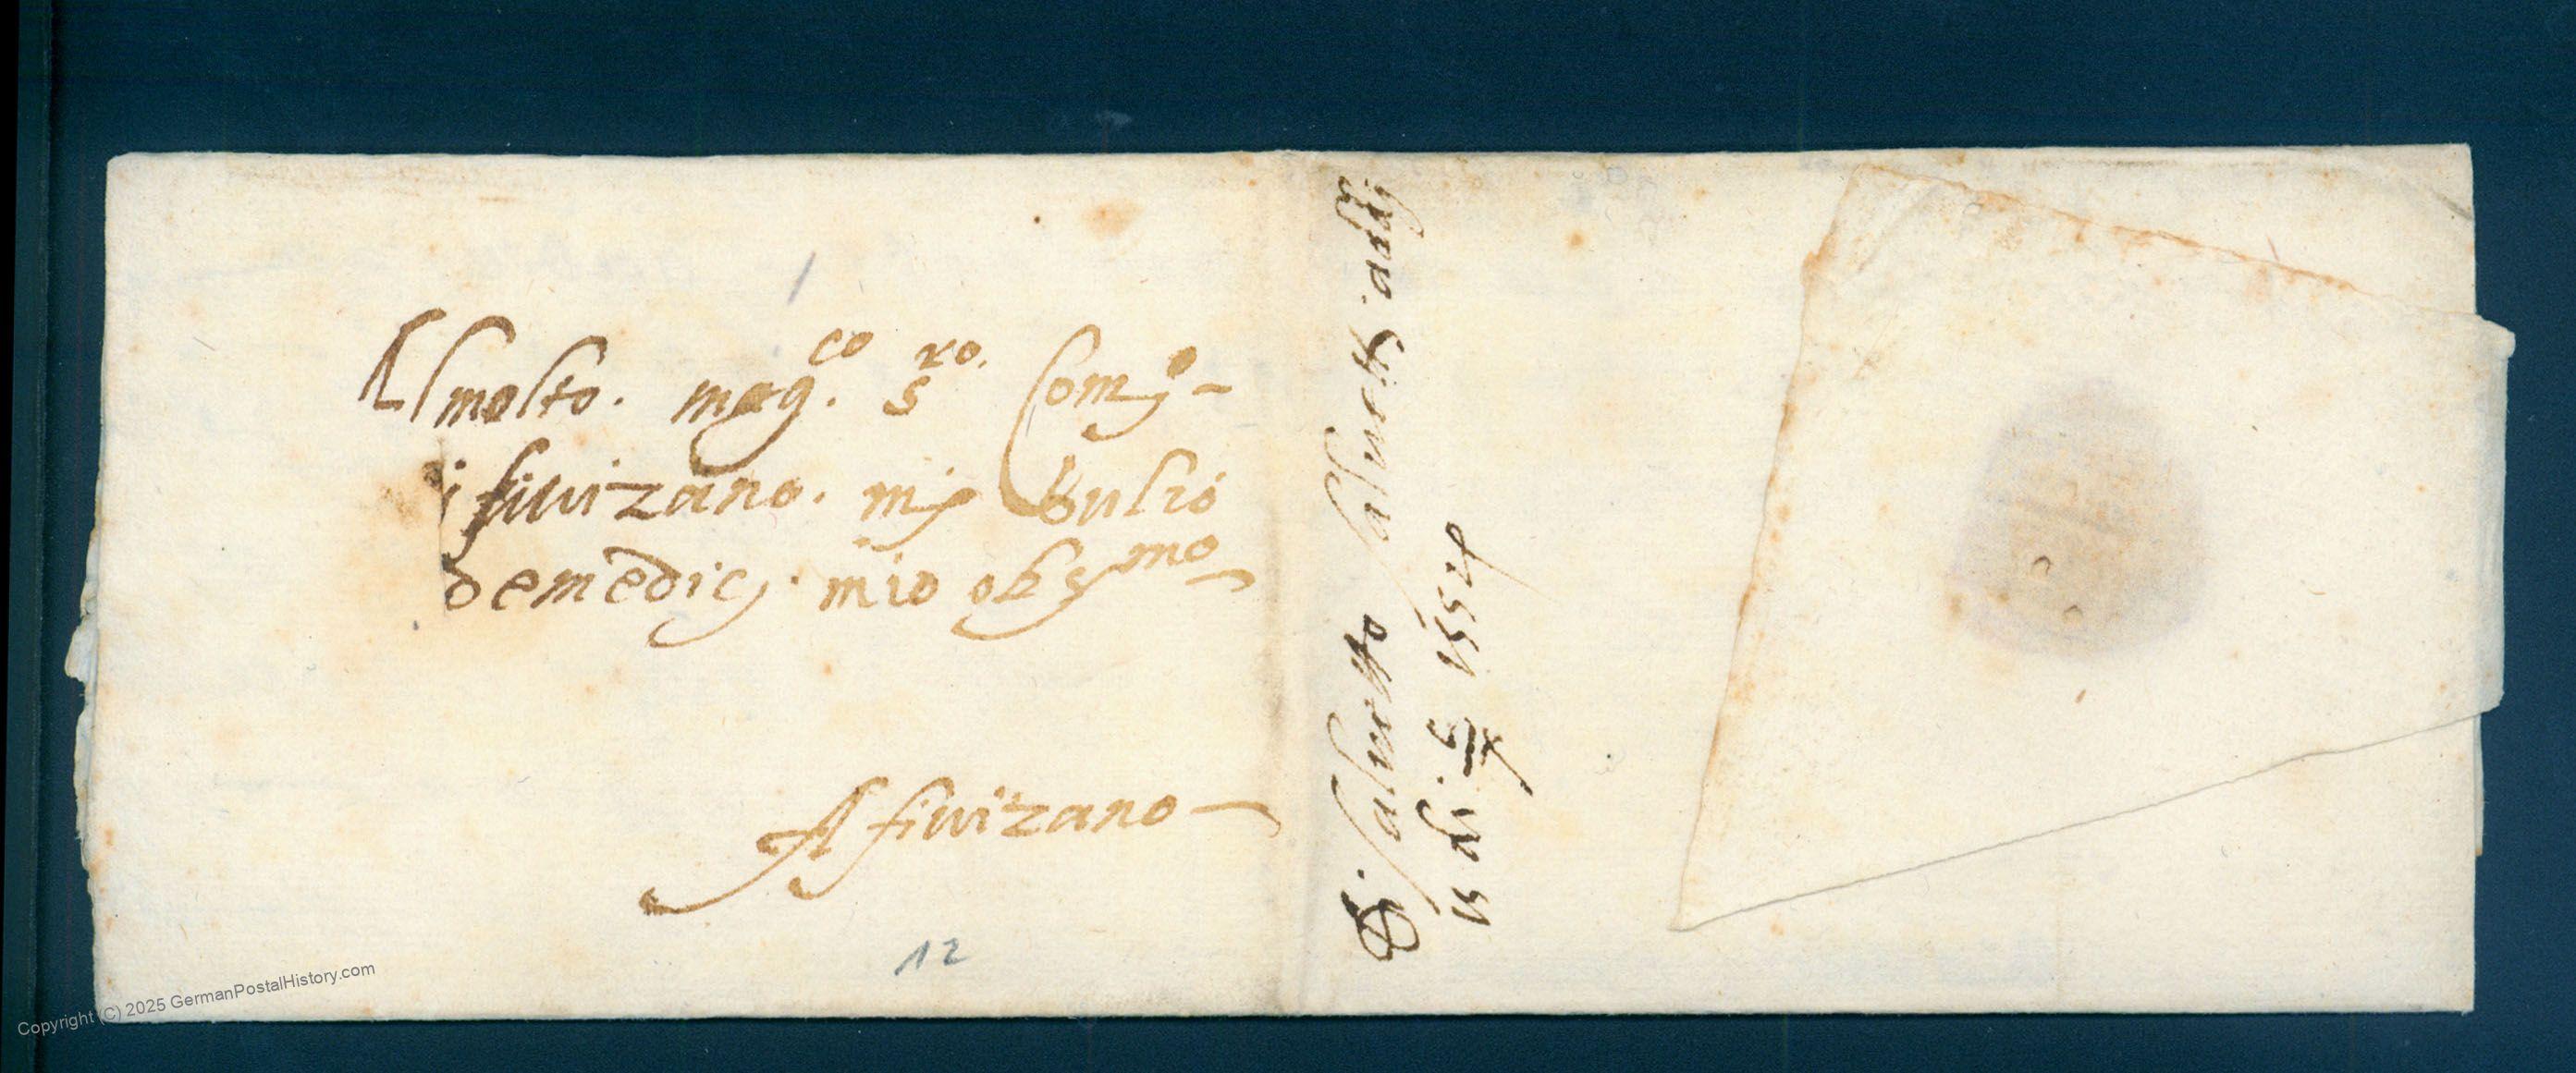 Al molto. mag.co s.ro Com.o
i fiuizano. mis Gulio
de medicj. mio oss.mo
A fiuizano
12
Di salueto
is di 1554
Copyright (C) 2025 GermanPostalHistory.com